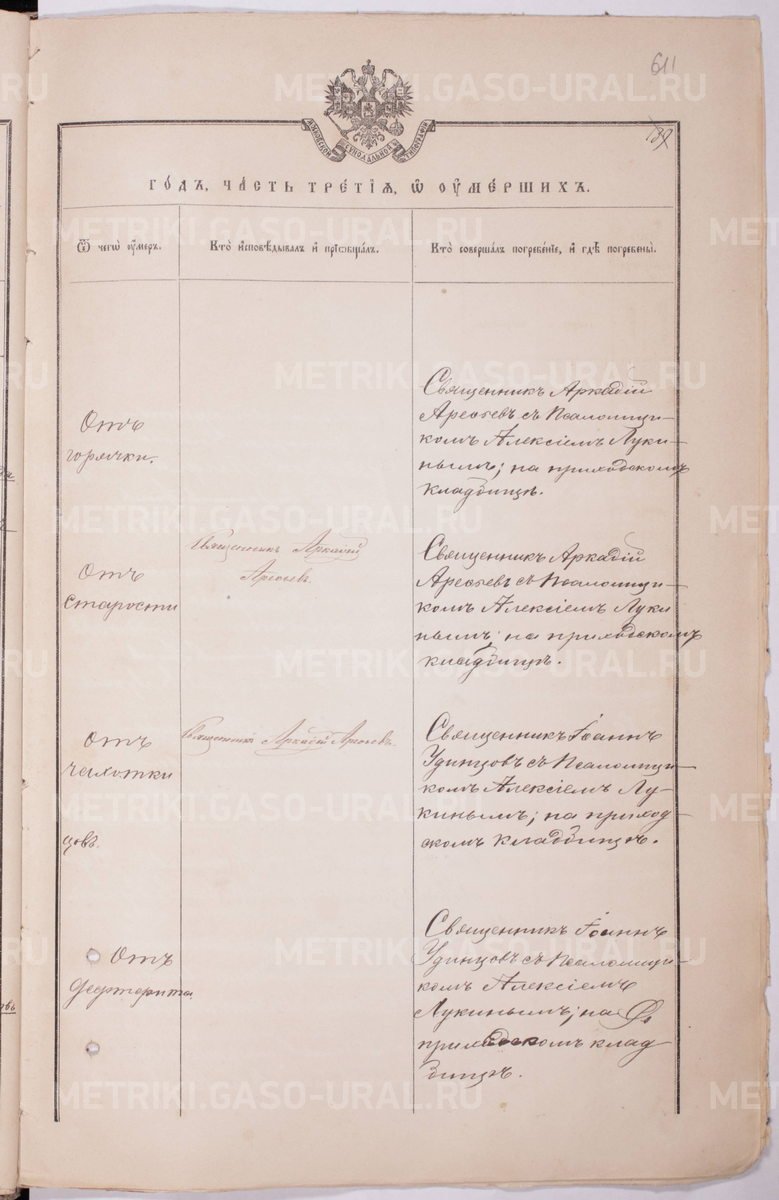 611
АМОСКОВ. СУНОДАЛЬНОЙ ТИПОГРАФІИ
ГО́ДЪ, ЧА́СТЬ ТРЕ́ТІЯ, Ѽ ОУ҆МЕ́РШИХЪ.
Ѿ чегѡ̀ ᲂу҆́меръ.
Кто̀ и҆сповѣ́дывалъ и҆ пріѻбща́лъ.
Кто̀ соверша́лъ погребе́ніе, и҆ гдѣ̀ погребены̀.
Отъ
горячки.
Священникъ Аркадій
Арефьевъ съ Псаломщи-
комъ Алексіемъ Луки-
нымъ; на приходскомъ
кладбищѣ.
Отъ
старости
Священникъ Аркадій
Арефьевъ
Священникъ Аркадій
Арефьевъ съ Псаломщи-
комъ Алексіемъ Луки
нымъ; на приходскомъ
кладбищѣ.
Отъ
чахотки
Священникъ Аркадій Арефьевъ.
Священникъ Іоаннъ
Удинцовъ съ Псаломщи-
комъ Алексіемъ Лу-
кинымъ; на приход-
скомъ кладбищѣ.
цовъ.
Отъ
дефтерита
Священникъ Іоаннъ
Удинцовъ съ Псаломщи-
комъ Алексіемъ
Лукинымъ; на
приходскомъ клад
бищѣ.
METRIKI.GASO-URAL.RU